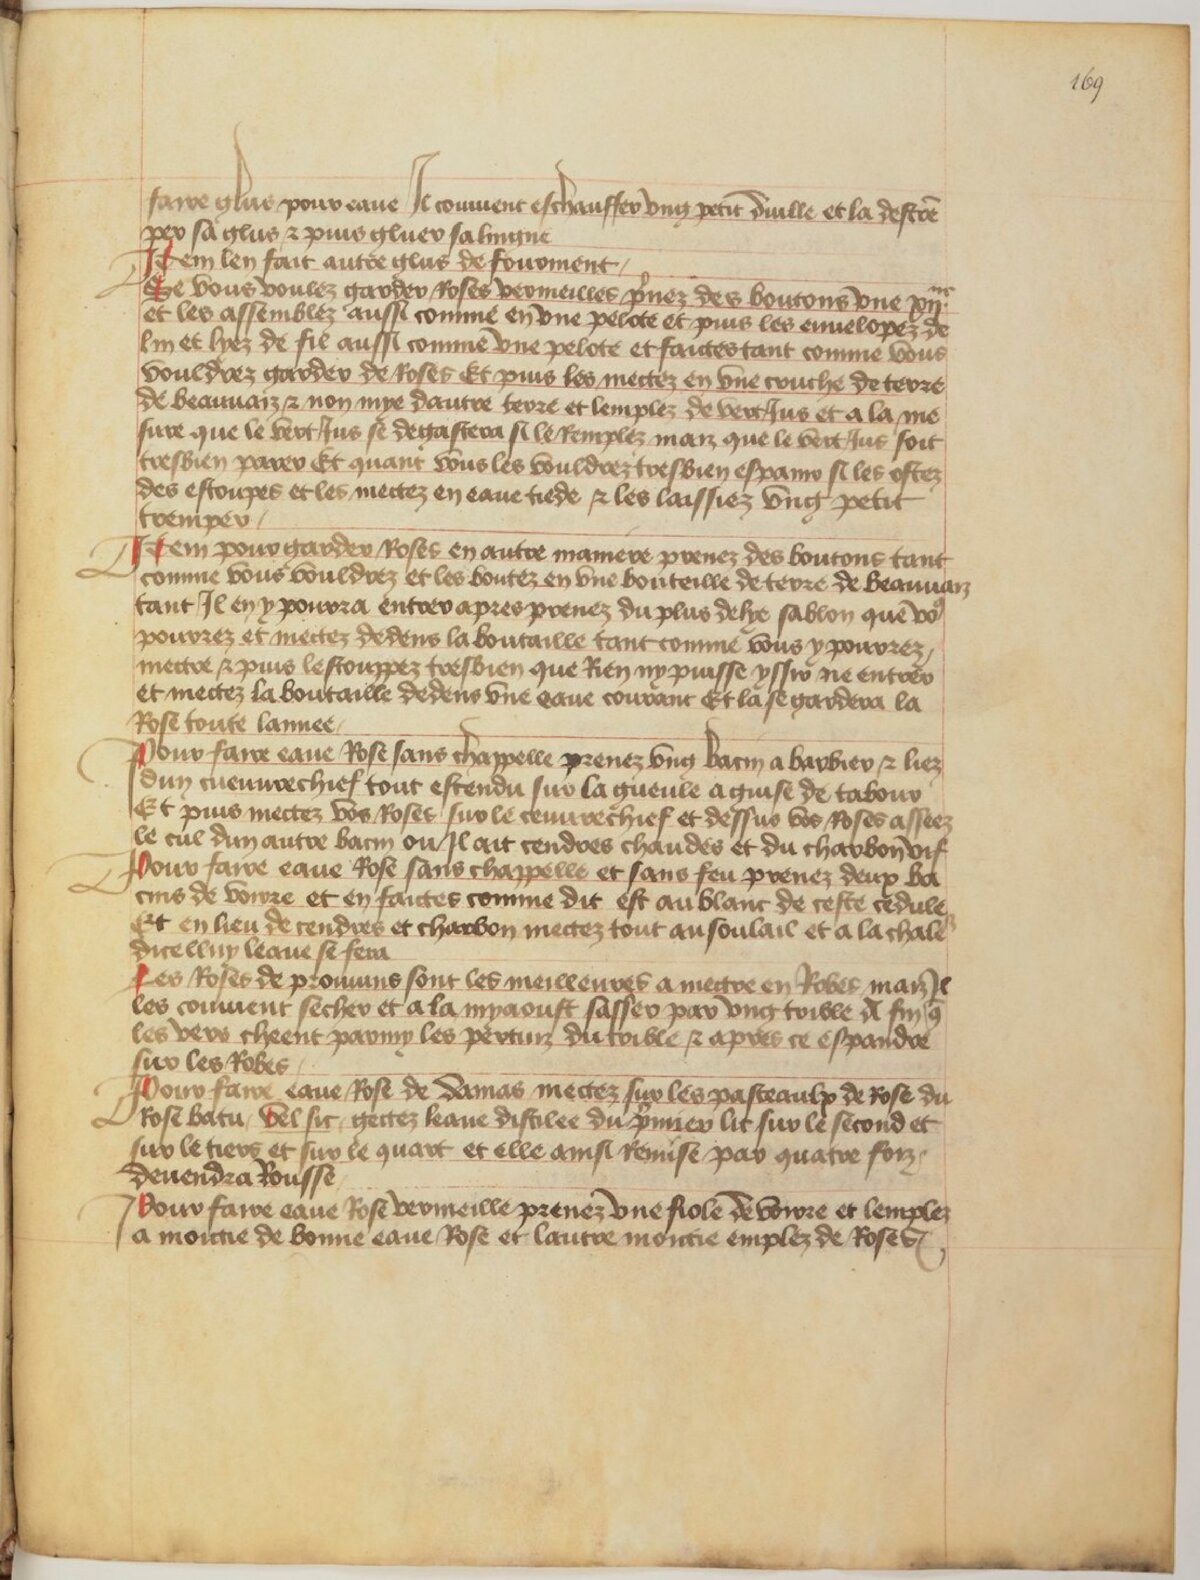 169
faire glus pour eaue Il convient eschauffer ung petit duille et la destre
per sa glus ⁊ puis gluer sa lingne
Item len fait autre glus de fourment /
Se vous voulez garder Roses vermeilles p̃nez des boutons une xij.ne
et les assemblez aussi comme en une pelote et puis les envelopez de
lin et lyez de fil aussi comme une pelote et faictes tant comme vous
vouldrez garder de Roses Et puis les mectez en une cruche de terre
de beauvaiz ⁊ non mye dautre terre et lemplez de vert Jus et a la me
sure que le vert Jus se degastera si le Remplez maiz que le vert Jus soit
tresbien parer Et quant vous les vouldrez tresbien espanir si les ostez
des estoupes et les mectez en eaue tiede ⁊ les laissiez ung petit
tremper /
Item pour garder Roses en autre maniere prenez des boutons tant
comme vous vouldrez et les boutez en une bouteille de terre de beauvaiz
tant Il en y pourra entrer apres prenez du plus delye sablon que vo9
pourrez et mectez dedens la boutaille tant comme vous y pourrez,
mectre ⁊ puis lestouppez tresbien que Rien ny puisse yssir ne entrer
et mectez la boutaille dedens une eaue courant Et la se gardera la
Rose toute lannee /
Pour faire eaue Rose sans chappelle prenez ung bacin a barbier ⁊ liez
dun cueuvrechief tout estendu sur la gueule a guise de tabour
Et puis mectez vos Roses sur le ceuvrechief et dessus vos Roses asseez
le cul dun autre bacin ou Il ait cendres chaudes et du charbon vif
Pour faire eaue Rose sans chappelle et sans feu prenez deux ba
cins de voirre et en faictes comme dit est au blanc de ceste cedule
Et en lieu de cendres et charbon mectez tout au soulail et a la chale
dicelluy leaue se fera
Les Roses de prouvins sont les meilleures a mectre en Robes, maiz Il
les convient secher et a la myaoust sasser par ung crible A fin q̃
les vers cheent parmy les pertuiz du crible ⁊ apres ce espandre
sur les Robes /
Pour faire eaue Rose de damas mectez sur les pasteaulx de Rose du
Rose batu / Vel sic / gectez leaue distilee du p̃mier lit sur le second et
sur le tiers et sur le quart et elle ainsi Remise par quatre foiz,
devendra Rousse /
Pour faire eaue Rose vermeille prenez une fiole de voirre et lemplez
a moictie de bonne eaue Rose et lautre moictie emplez de Roses